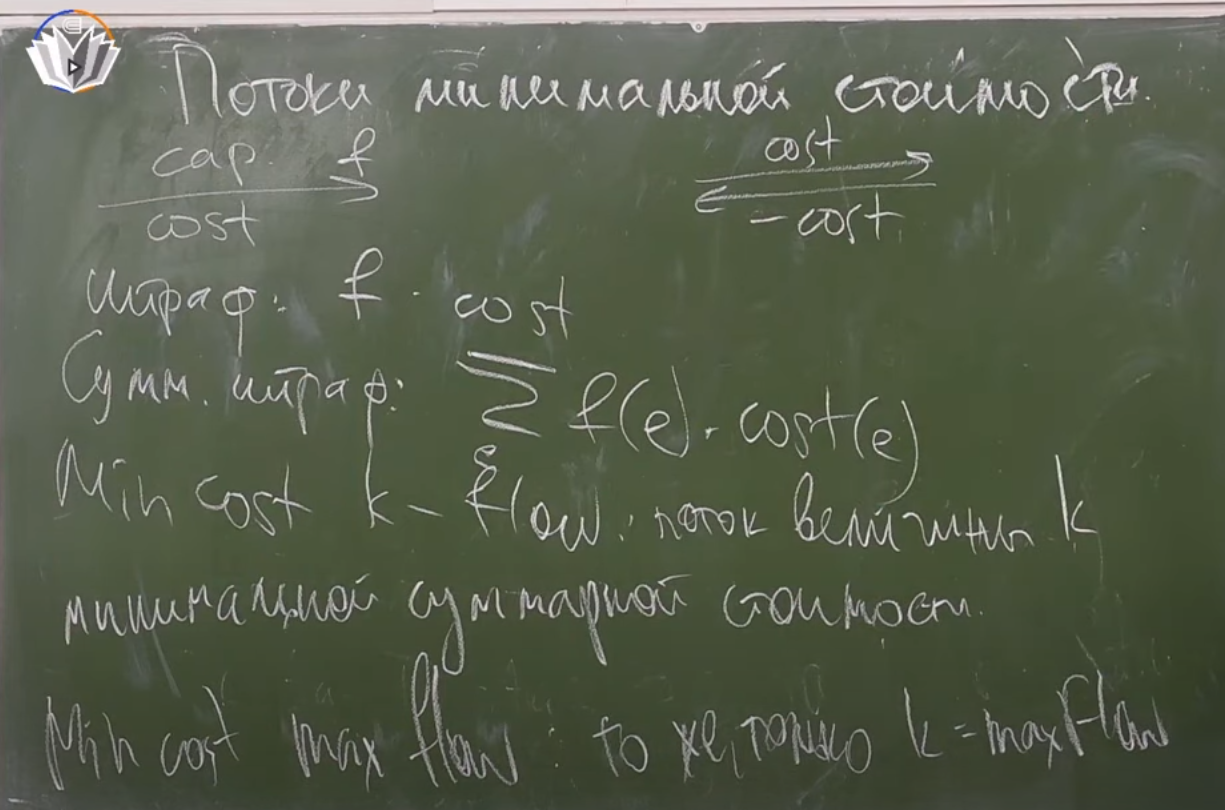 Потоки минимальной стоимости.
cap. f
cost
cost
-cost
штраф: f · cost
Сумм. штраф: Σ f(e) · cost(e)
e
Min cost k-flow: поток величины k
минимальной суммарной стоимости.
Min cost max flow: то же, только k = maxflow